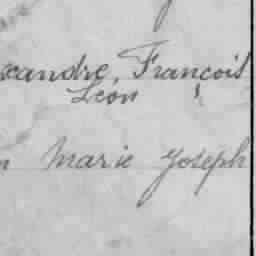 xandre, François
Léon
n Marie Joseph